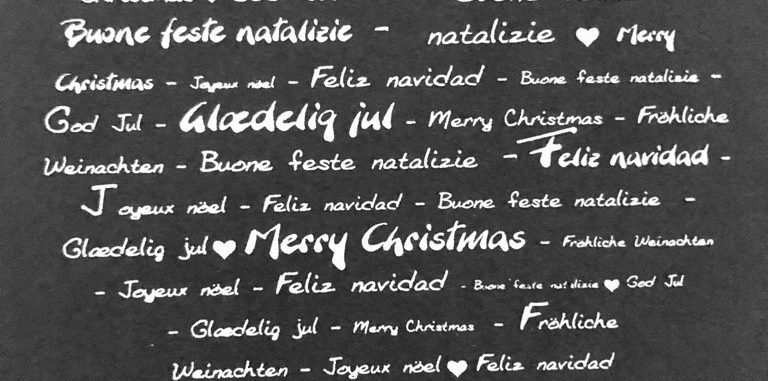 Buone feste natalizie - natalizie ♥ Merry
Christmas - Joyeux nöel - Feliz navidad - Buone feste natalizie -
God Jul - Glædelig jul - Merry Christmas - Fröhliche
Weinachten - Buone feste natalizie - Feliz navidad -
Joyeux nöel - Feliz navidad - Buone feste natalizie -
Glædelig jul ♥ Merry Christmas - Fröhliche Weinachten
- Joyeux nöel - Feliz navidad - Buone feste natalizie ♥ God Jul
- Glædelig jul - Merry Christmas - Fröhliche
Weinachten - Joyeux nöel ♥ Feliz navidad